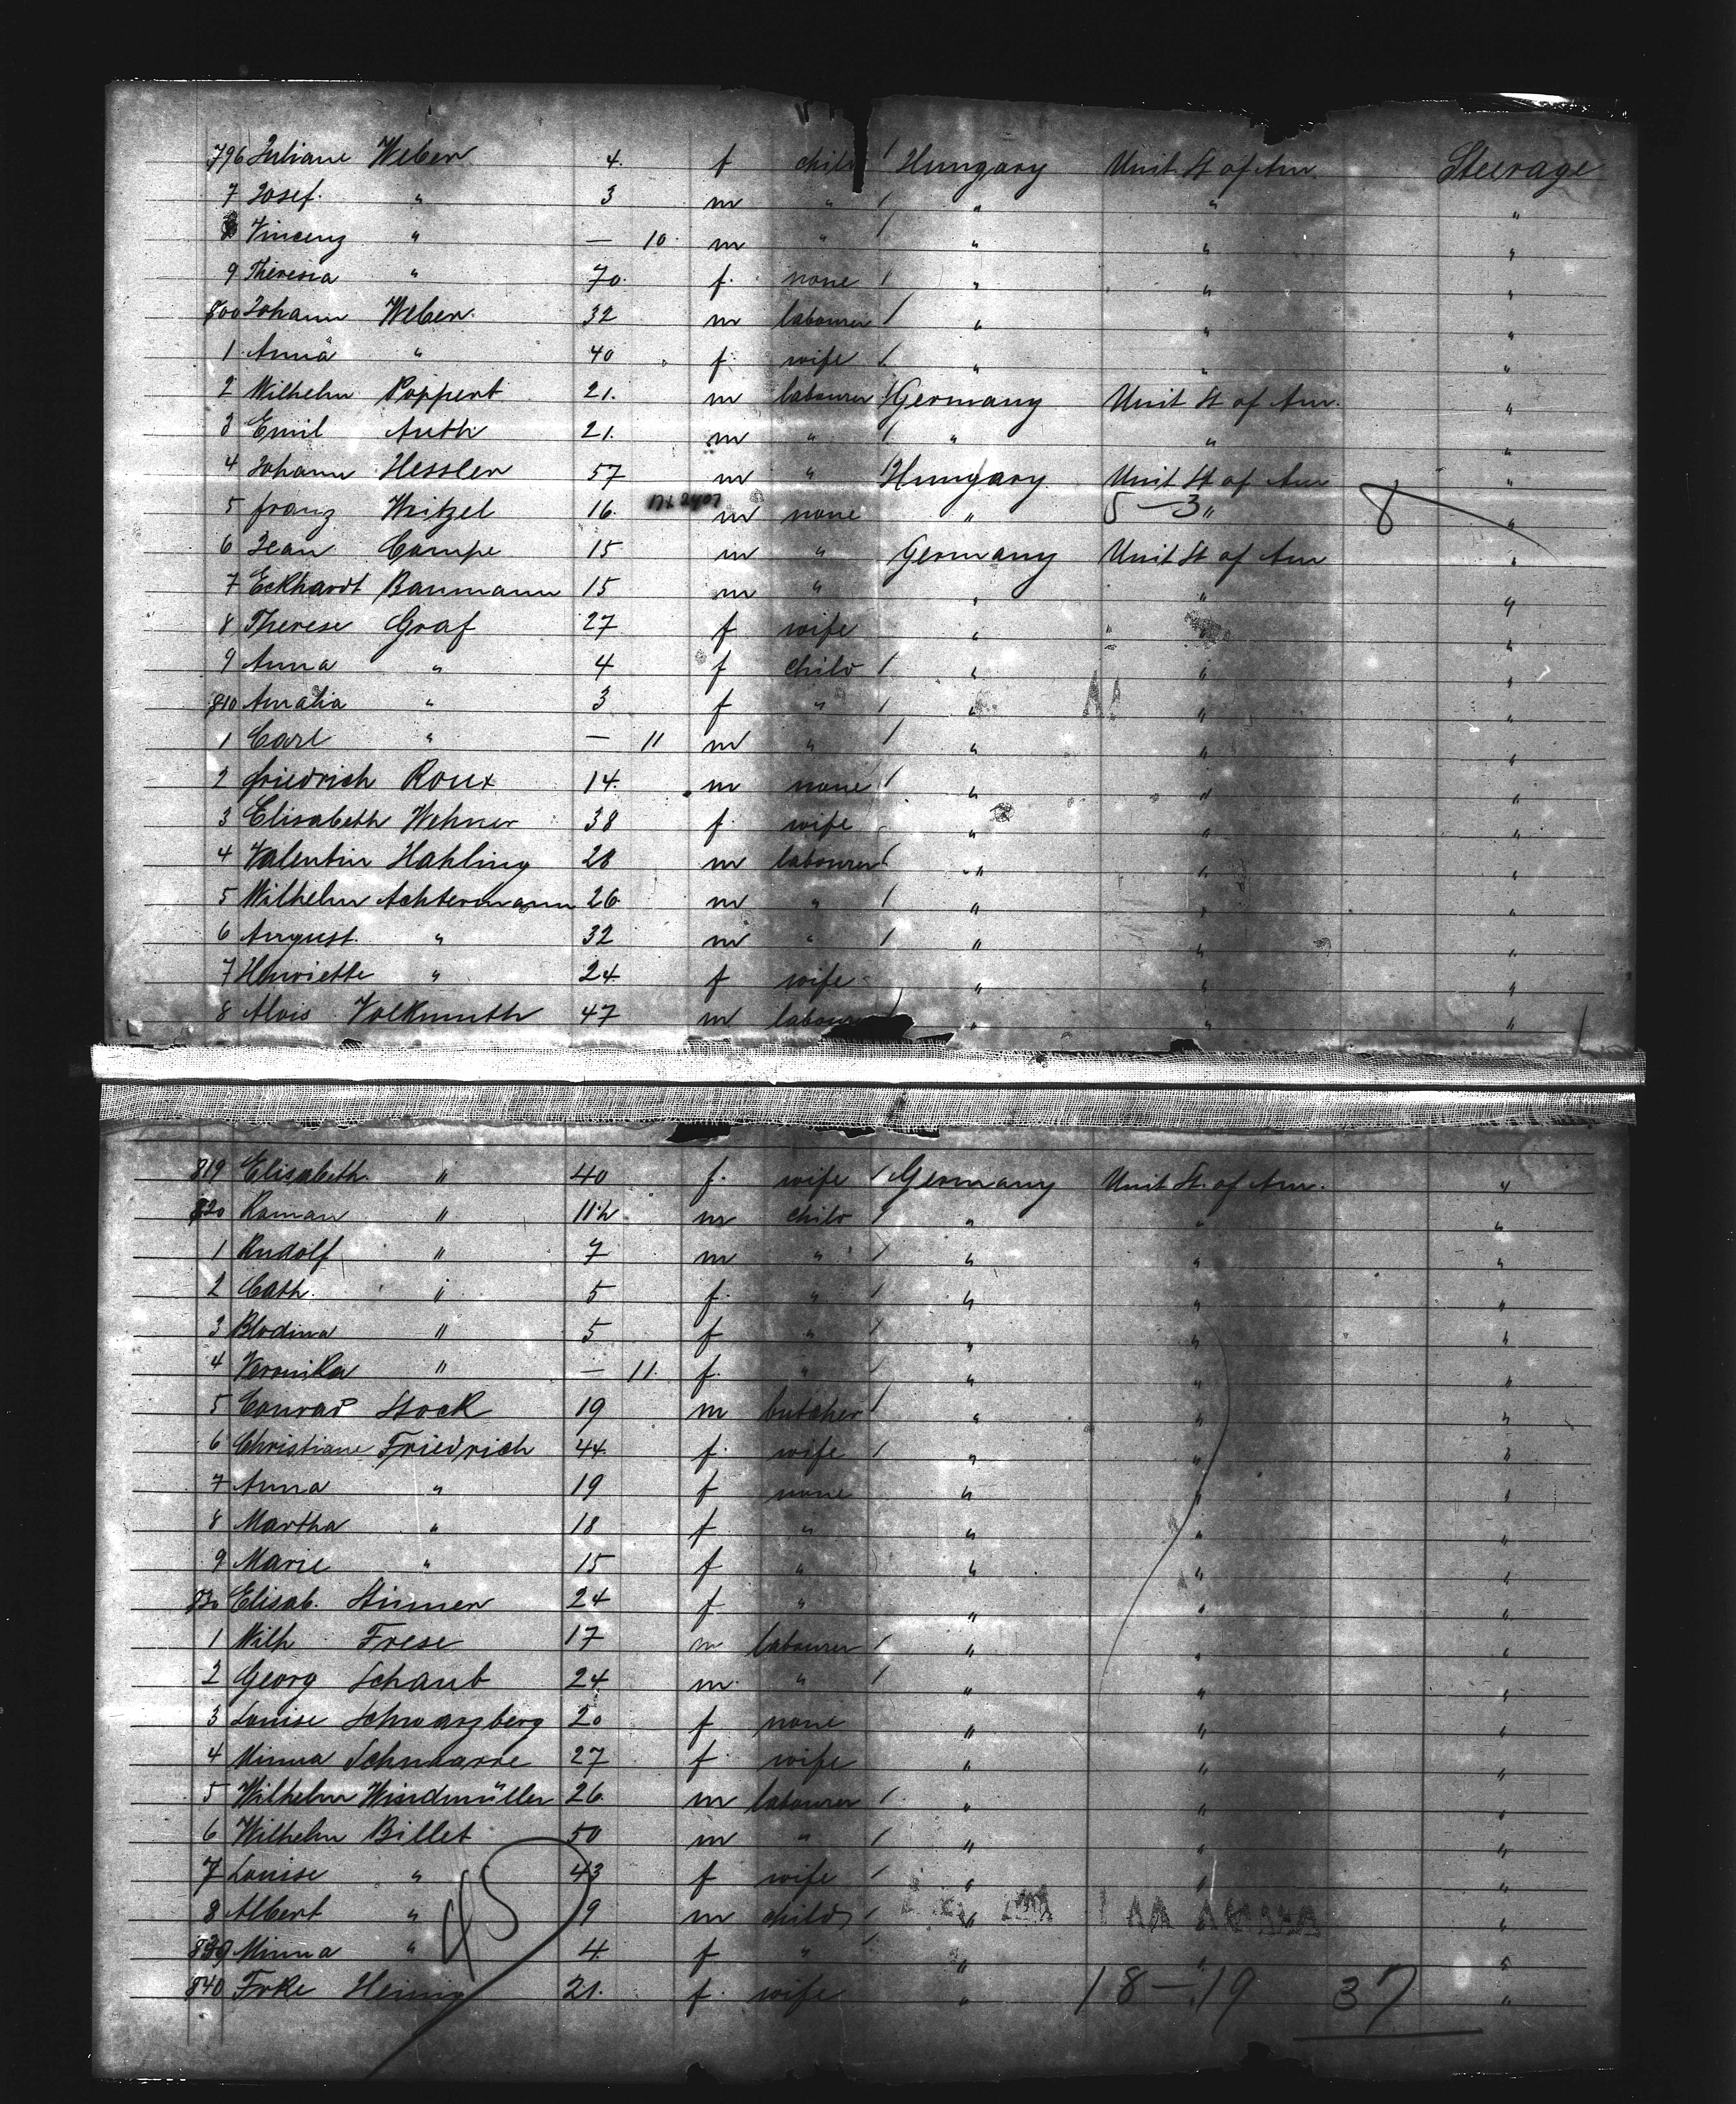 796 Juliane Weber 4. f child / Hungary Unit. St of Am. Steerage
7 Josef. " 3 m " / " " "
8 Vincenz " — 10. m " / " " "
9 Theresia " 70. f. none / " " "
800 Johann Weber. 32 m labourer / " " "
1 Anna " 40 f. wife / " " "
2 Wilhelm Poppert 21. m labourer / Germany Unit St of Am. "
3 Emil Auth 21. m " / " " "
4 Johann Hessler 57 m " / Hungary. Unit St of Am "
5 franz Weitzel 16. m none " 5-3 " 8 "
6 Jean Campe 15 m " Germany Unit St of Am "
7 Eckhardt Baumann 15 m " " " "
8 Therese Graf 27 f wife " " "
9 Anna " 4 f child / " " "
810 Amalia " 3 f " / " " "
1 Carl " — 11 m " / " " "
2 friedrich Roux 14. m none / " " "
3 Elisabeth Wehner 38 f. wife " " "
4 Valentin Hahling 28 m labourer / " " "
5 Wilhelm Achtermann 26 m " / " " "
6 August. " 32 m " / " " "
7 Henriette " 24. f wife " " "
8 Alois Volkmuth 47 m labourer " " "
819 Elisabeth " 40 f. wife / Germany Unit St. of Am. "
820 Roman " 11½ m child / " " "
1 Rudolf " 7 m " / " " "
2 Cath. " 5 f. " / " " "
3 Blodina " 5 f " / " " "
4 Veronika " — 11. f. " / " " "
5 Conrad Stock 19 m butcher / " " "
6 Christiane Friedrich 44. f. wife / " " "
7 Anna " 19 f none " " "
8 Martha " 18 f " " " "
9 Marie " 15 f " " " "
830 Elisab. Stimmer 24 f. " " " "
1 Wilh Frese 17 m labourer / " " "
2 Georg Schaub 24 m. " / " " "
3 Louise Schwarzberg 20 f none " " "
4 Minna Schnarre 27 f. wife " " "
5 Wilhelm Windmüller 26. m labourer / " " "
6 Wilhelm Billet 50 m " / " " "
7 Louise " 43 f wife / " " "
8 Albert " 9 m child / " " "
839 Minna " 4. f " / " " "
840 Frke Heinig 21. f. wife " 18-19 37 "
45